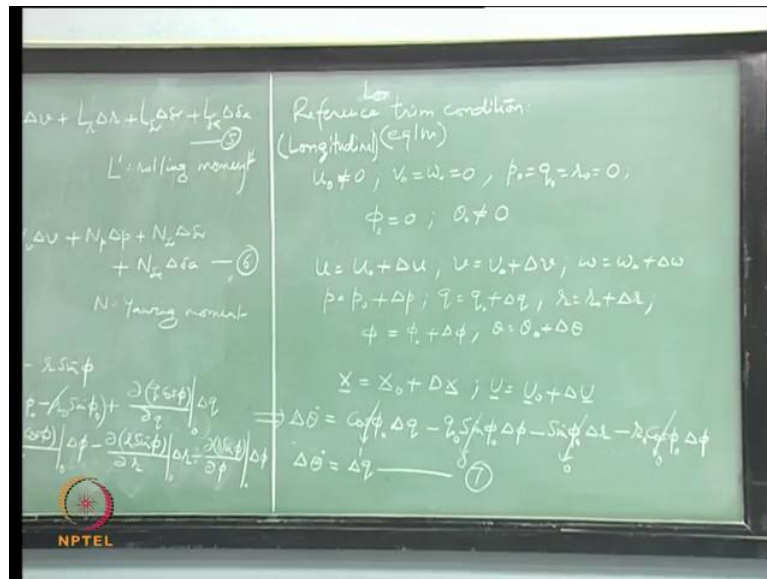 Δv + L_r Δr + L_δr Δδr + L_δa Δδa
— ⑤
L' = rolling moment
Δv + N_p Δp + N_δr Δδr
+ N_δa Δδa — ⑥
N - Yawing moment
- r sin φ
∂(q cosφ)/∂q |₀ Δq
|₀ Δφ - ∂(r sinφ)/∂r |₀ Δr - ∂(r sinφ)/∂φ |₀ Δφ
Lon
Reference trim condition:
(Longitudinal) (eqlm)
u₀ ≠ 0 ; v₀ = w₀ = 0 , p₀ = q₀ = r₀ = 0 ;
φ₀ = 0 ; θ₀ ≠ 0
u = u₀ + Δu , v = v₀ + Δv , w = w₀ + Δw
p = p₀ + Δp ; q = q₀ + Δq , r = r₀ + Δr ;
φ = φ₀ + Δφ , θ = θ₀ + Δθ
X = X₀ + ΔX ; U = U₀ + ΔU
⇒ Δθ̇ = cosφ₀ Δq - q₀ sinφ₀ Δφ - sinφ₀ Δr - r₀ cosφ₀ Δφ
1 0 0 0
Δθ̇ = Δq — ⑦
NPTEL